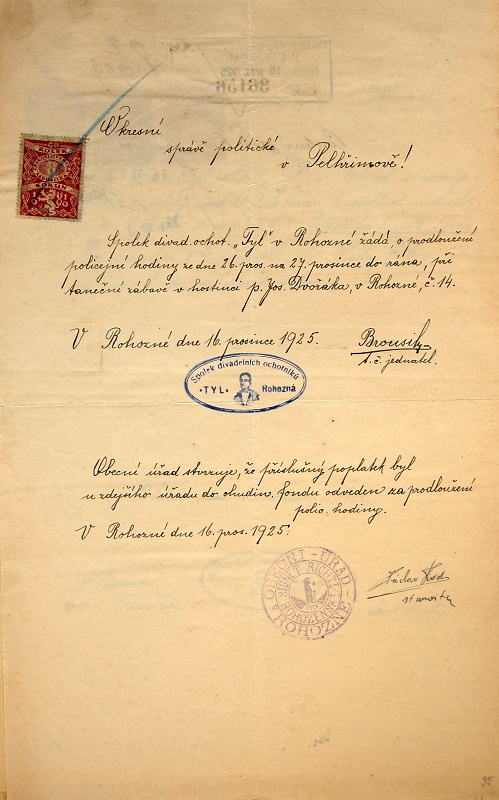 Okresní
správě politické
v Pelhřimově!
Spolek divad. ochot. „Tyl" v Rohozné žádá, o prodloužení
policejní hodiny ze dne 26. pros. na 27. prosince do rána, při
taneční zábavě v hostinci p. Jos. Dvořáka, v Rohozné, č. 14.
V Rohozné dne 16. prosince 1925.
Brousil
t. č. jednatel.
Spolek divadelních ochotníků
TYL Rohozná
Obecní úřad stvrzuje, že příslušný poplatek byl
u zdejšího úřadu do chudin. fondu odveden za prodloužení
polic. hodiny.
V Rohozné dne 16. pros. 1925.
OBECNÍ - ÚŘAD
ROHOZNÉ
Václav
starosta
35